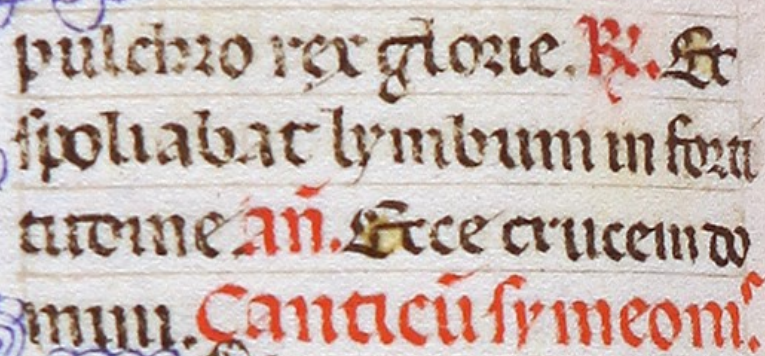 pulchro rex glorie. R. Et
spoliabat lymbum in forti
tudine añ. Ecce crucem do
mini. Canticū symeonis.